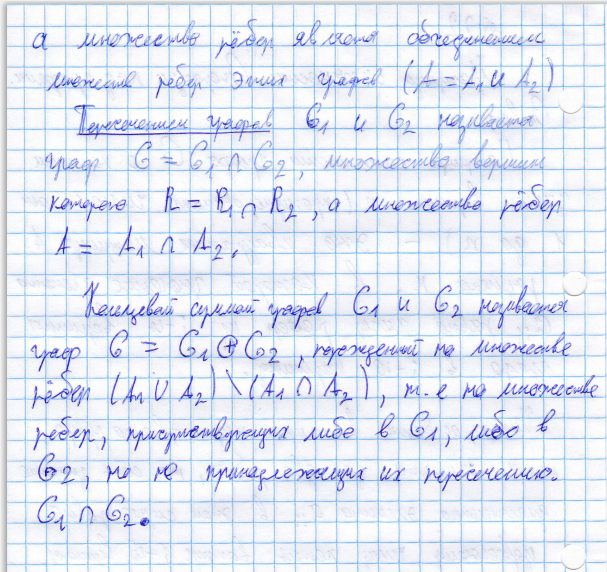 а множество рёбер является объединением
множеств рёбер этих графов (A = A₁ ∪ A₂)
Пересечением графов G₁ и G₂ называется
граф G = G₁ ∩ G₂, множество вершин
которого R = R₁ ∩ R₂, а множество рёбер
A = A₁ ∩ A₂.
Кольцевой суммой графов G₁ и G₂ называется
граф G = G₁ ⊕ G₂, порожденный на множестве
рёбер (A₁ ∪ A₂) \ (A₁ ∩ A₂), т.е на множестве
ребер, присутствующих либо в G₁, либо в
G₂, но не принадлежащих их пересечению.
G₁ ∩ G₂.